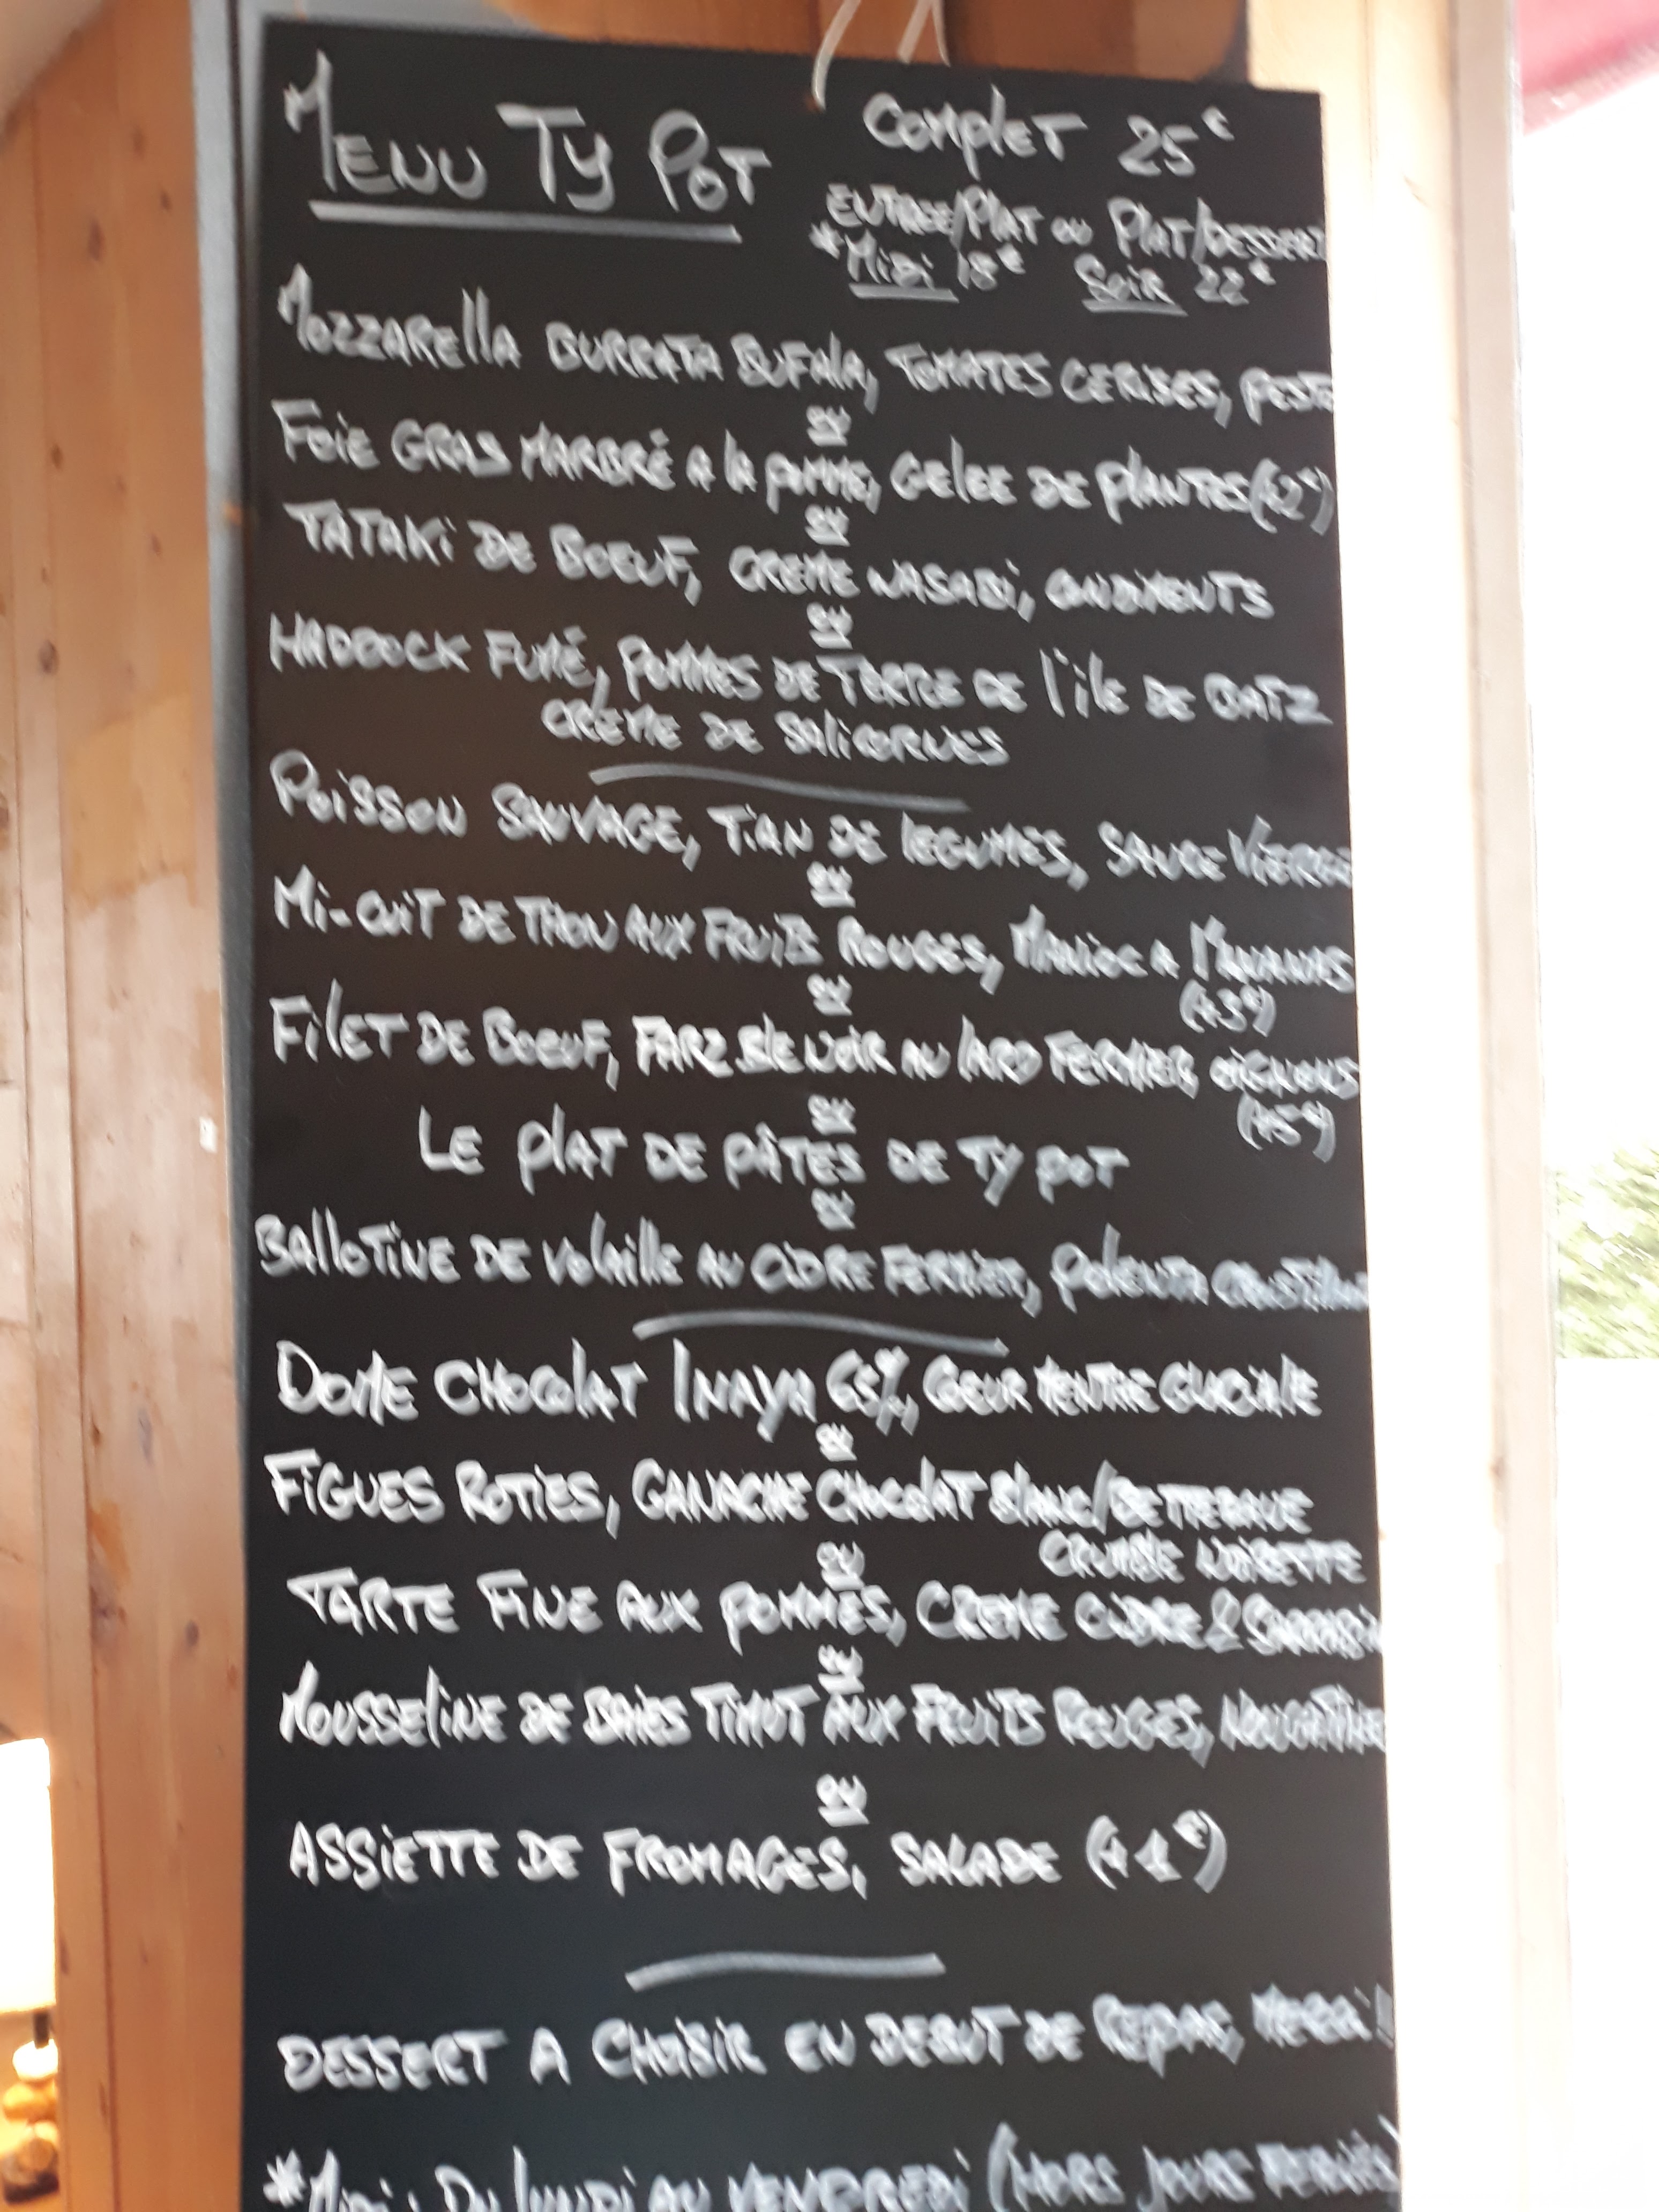 MENU TY POT
COMPLET 25€
ENTREE/PLAT OU PLAT/DESSERT
*MIDI 18€ SOIR 22€
MOZZARELLA BURRATA BUFALA, TOMATES CERISES, PESTO
OU
FOIE GRAS MARBRÉ A LA POMME, GELEE DE PLANTES (+2€)
OU
TATAKI DE BOEUF, CREME WASABI, CONDIMENTS
OU
HADDOCK FUMÉ, POMMES DE TERRE DE L'ILE DE BATZ
CREME DE SALICORNES
POISSON SAUVAGE, TIAN DE LEGUMES, SAUCE VIERGE
OU
MI-CUIT DE THON AUX FRUITS ROUGES, MANIOC A L'ANANAS
(+3€)
OU
FILET DE BOEUF, FARZ BLE NOIR AU LARD FERMIER, OIGNONS
(+5€)
OU
LE PLAT DE PÂTES DE TY POT
OU
BALLOTINE DE VOLAILLE AU CIDRE FERMIER, POLENTA
DOME CHOCOLAT INAYA 65%, COEUR MENTHE GLACIALE
OU
FIGUES ROTIES, GANACHE CHOCOLAT BLANC/BETTERAVE
OU
CRUMBLE NOISETTE
TARTE FINE AUX POMMES, CREME CIDRE & SARRASIN
OU
MOUSSELINE DE BAIES TIMUT AUX FRUITS ROUGES, NOUGATINE
OU
ASSIETTE DE FROMAGES, SALADE (+1€)
DESSERT A CHOISIR EN DEBUT DE REPAS, MERCI!!
*MIDI: DU LUNDI AU VENDREDI (HORS JOURS FERIÉS)